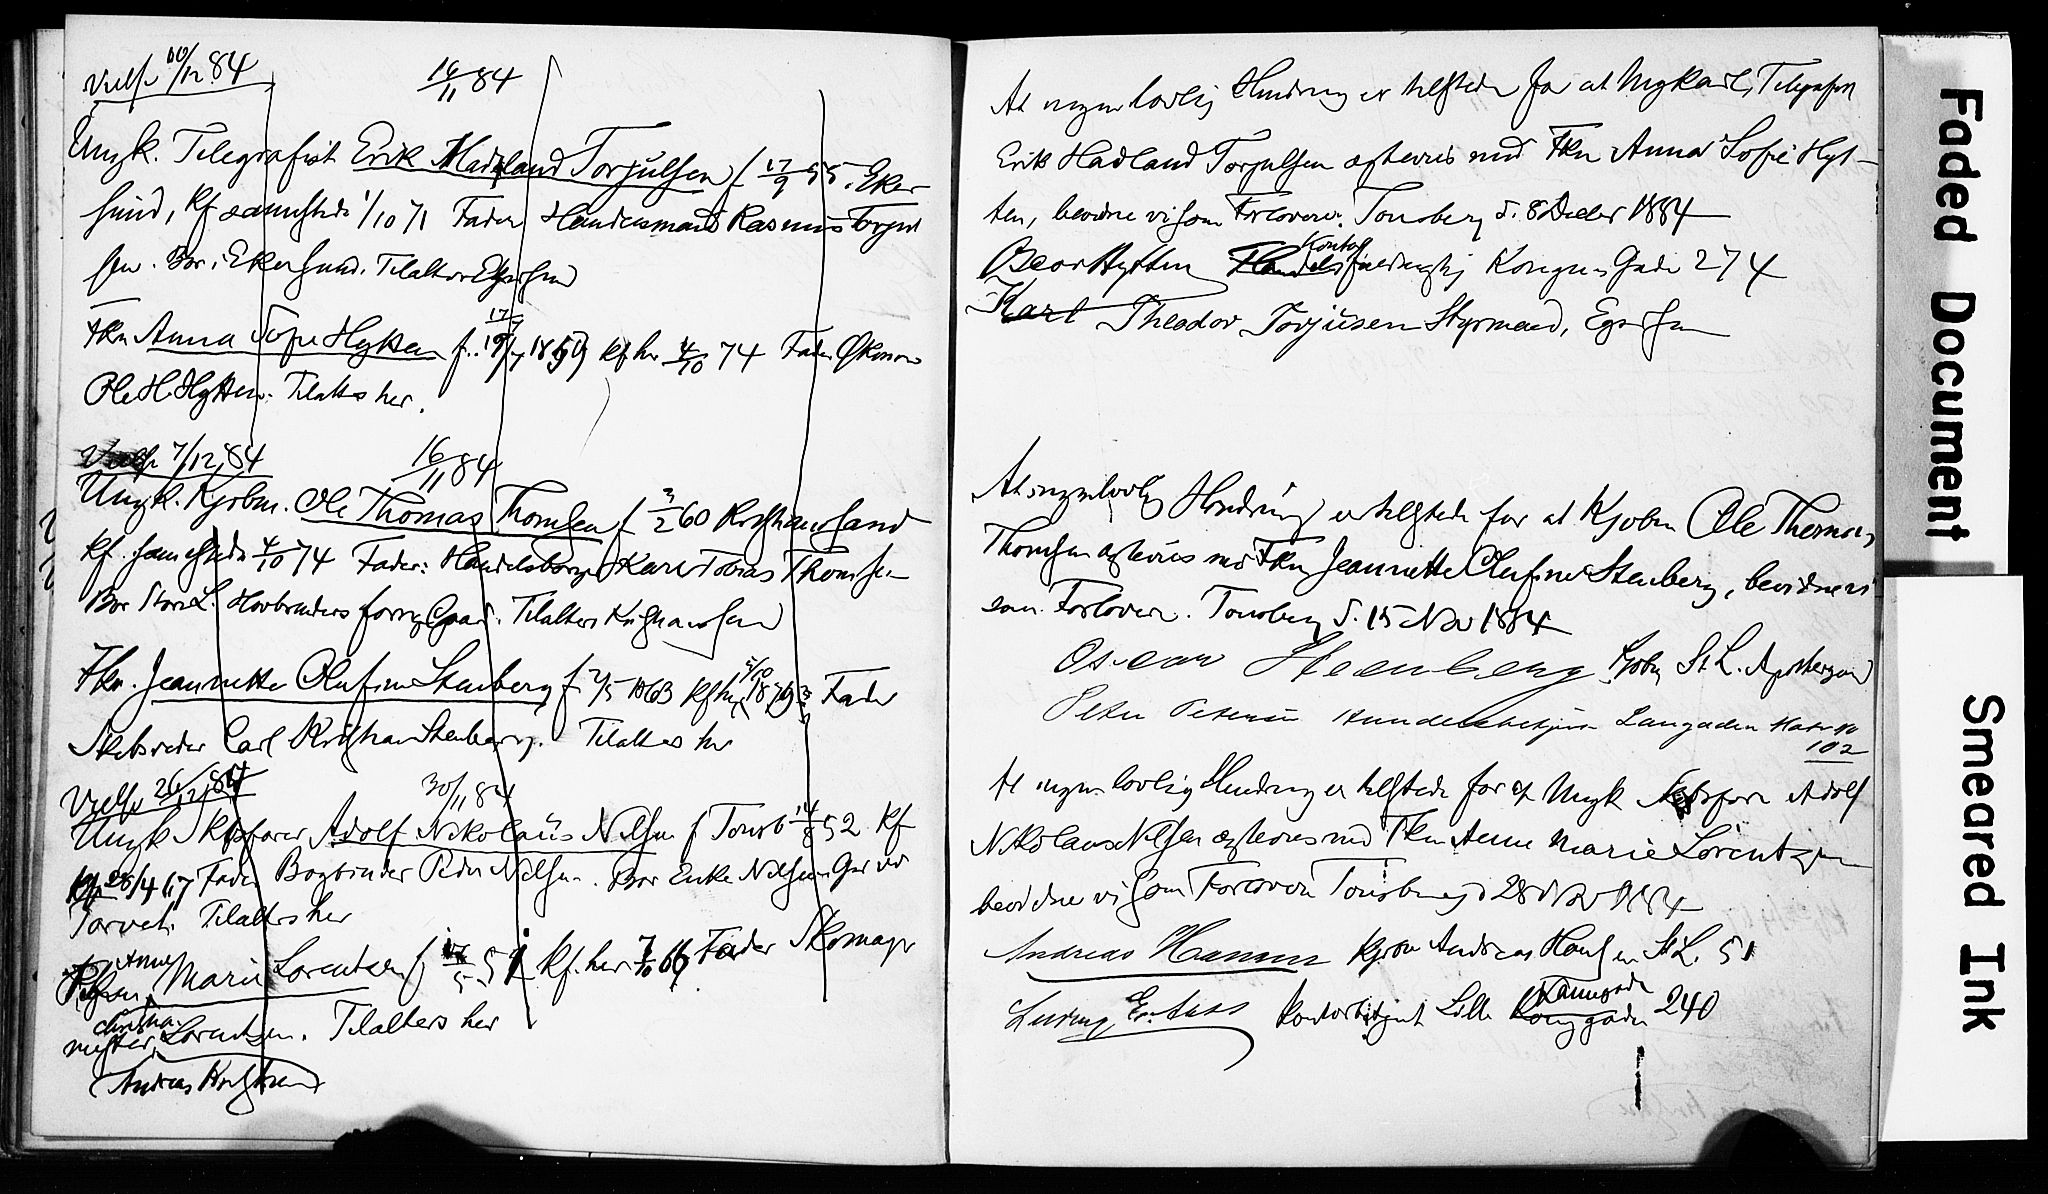 Vielse 10/12 84 16/11 84
Ungk. Telegrafist Erik Hadland Torjulsen f 17/9 55. Eker
sund, Kf sammesteds 1/10 71 Fader Handelsmand Rasmus Torjul
sen. Bor i Ekersund. Tilalters Egersund
Fkn Anna Sofie Hytten f. 17/7 1859 kf her 4/10 74 Fader Økonom
Ole H. Hytten. Tilalters her.
Vielse 7/12 84 16/11 84
Ungk. Kjøbm. Ole Thomas Thomsen f 3/2 60 Kristiansand
Kf. sammesteds 4/10 74 Fader: Handelsborger Karl Tobias Thomsen
Bor Store L. Tilalters Kristiansand
Fkn. Jeannette Olufine Stenberg f. 2/5 1863 Kf her 5/10 1879 Fader
Skibsreder Carl Kristian Stenberg. Tilalters her
Vielse 26/12 84 30/11 84
Ungk Skibsfører Adolf Nikolaus Nilsen f Tønsb 14/8 52 Kf
28/4 67 Fader Bogbinder Peder Nilsen. Bor Enke Nilsens Gaard
Torvet. Tilalters her
Anne Marie Lorentzen f 5 51 Kf. her 7/10 66 Fader Skomager
Christian
mester Lorentzen. Tilalters her
Andreas
At ingen lovlig Hindring er tilstede for at Ungkarl, Telegrafist
Erik Hadland Torjulsen ægtevies med Fkn Anna Sofie Hyt-
ten, bevidne vi som Forlovere. Tønsberg d. 8 Decbr 1884
Kontor
Hytten Handelsfuldmægtig Kongens Gade 274
Karl Theodor Torjusen Styrmand, Egersund
At ingen lovlig Hindring er tilstede for at Kjøbm Ole Thomas
Thomsen ægtevies med Fkn Jeannette Olufine Stenberg, bevidne vi
som Forlovere. Tønsberg d. 15 Nov 1884
Oscar Steenberg Kjøbm St. L.
Peter Petersen Langgaden Matr No
102
At ingen lovlig Hindring er tilstede for at Ungk Skibsfører Adolf
Nikolaus Nilsen ægtevies med Fkn Anne Marie Lorentzen
bevidne vi som Forlovere Tønsberg d 28 Nov 1884
Andreas Hansen Kjøbm Andreas Hansen St L. 51
Fammgade
Ludvig Kontorbetjent Lille Konggaden 240
Faded Document
Smeared Ink